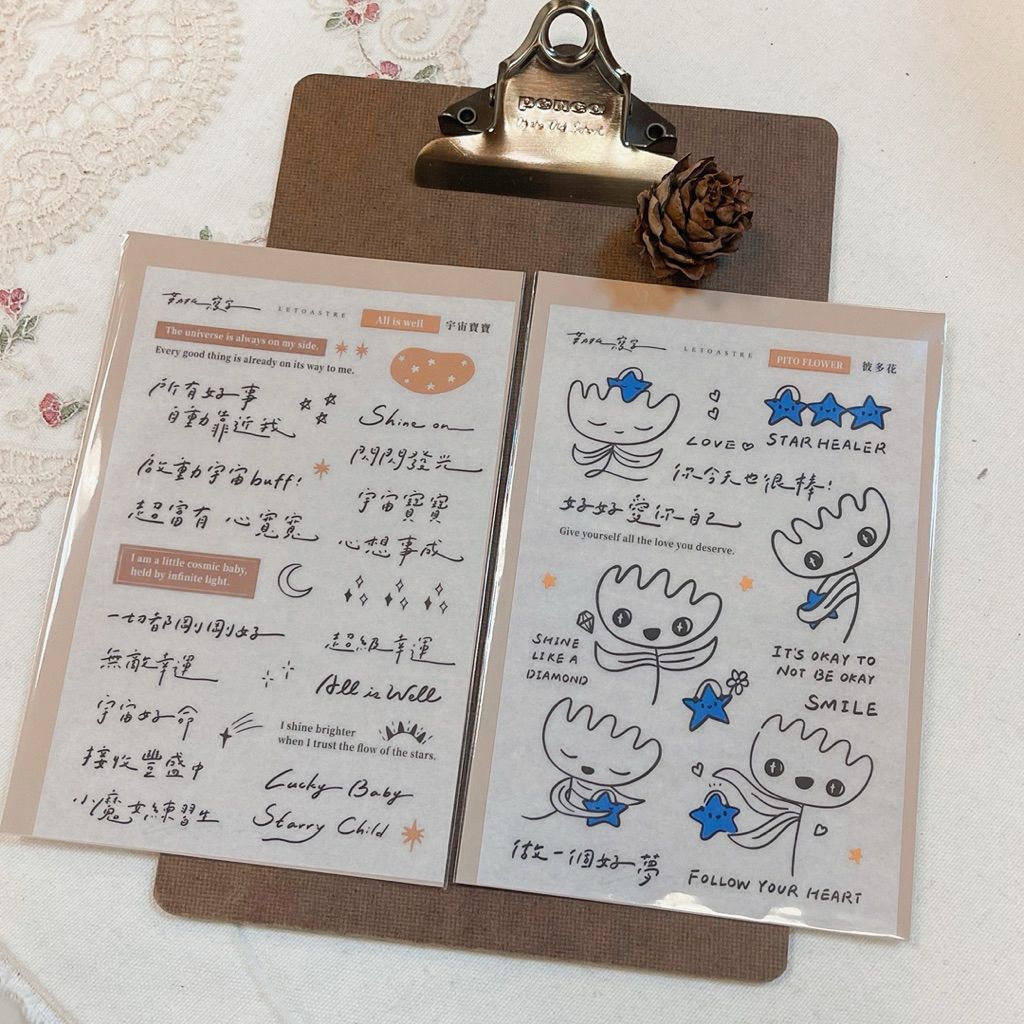 penco
LETOASTRE
All is well
宇宙寶寶
The universe is always on my side.
Every good thing is already on its way to me.
所有好事
自動靠近我
Shine on
閃閃發光
啟動宇宙buff!
宇宙寶寶
超富有 心寬寬
心想事成
I am a little cosmic baby,
held by infinite light.
一切都剛剛好
超級幸運
無敵幸運
All is Well
宇宙好命
I shine brighter
when I trust the flow of the stars.
接收豐盛中
Lucky Baby
小魔女練習生
Starry Child
LETOASTRE
PITO FLOWER
彼多花
LOVE
STAR HEALER
你今天也很棒!
好好愛你自己
Give yourself all the love you deserve.
SHINE
LIKE A
DIAMOND
IT'S OKAY TO
NOT BE OKAY
SMILE
做一個好夢
FOLLOW YOUR HEART